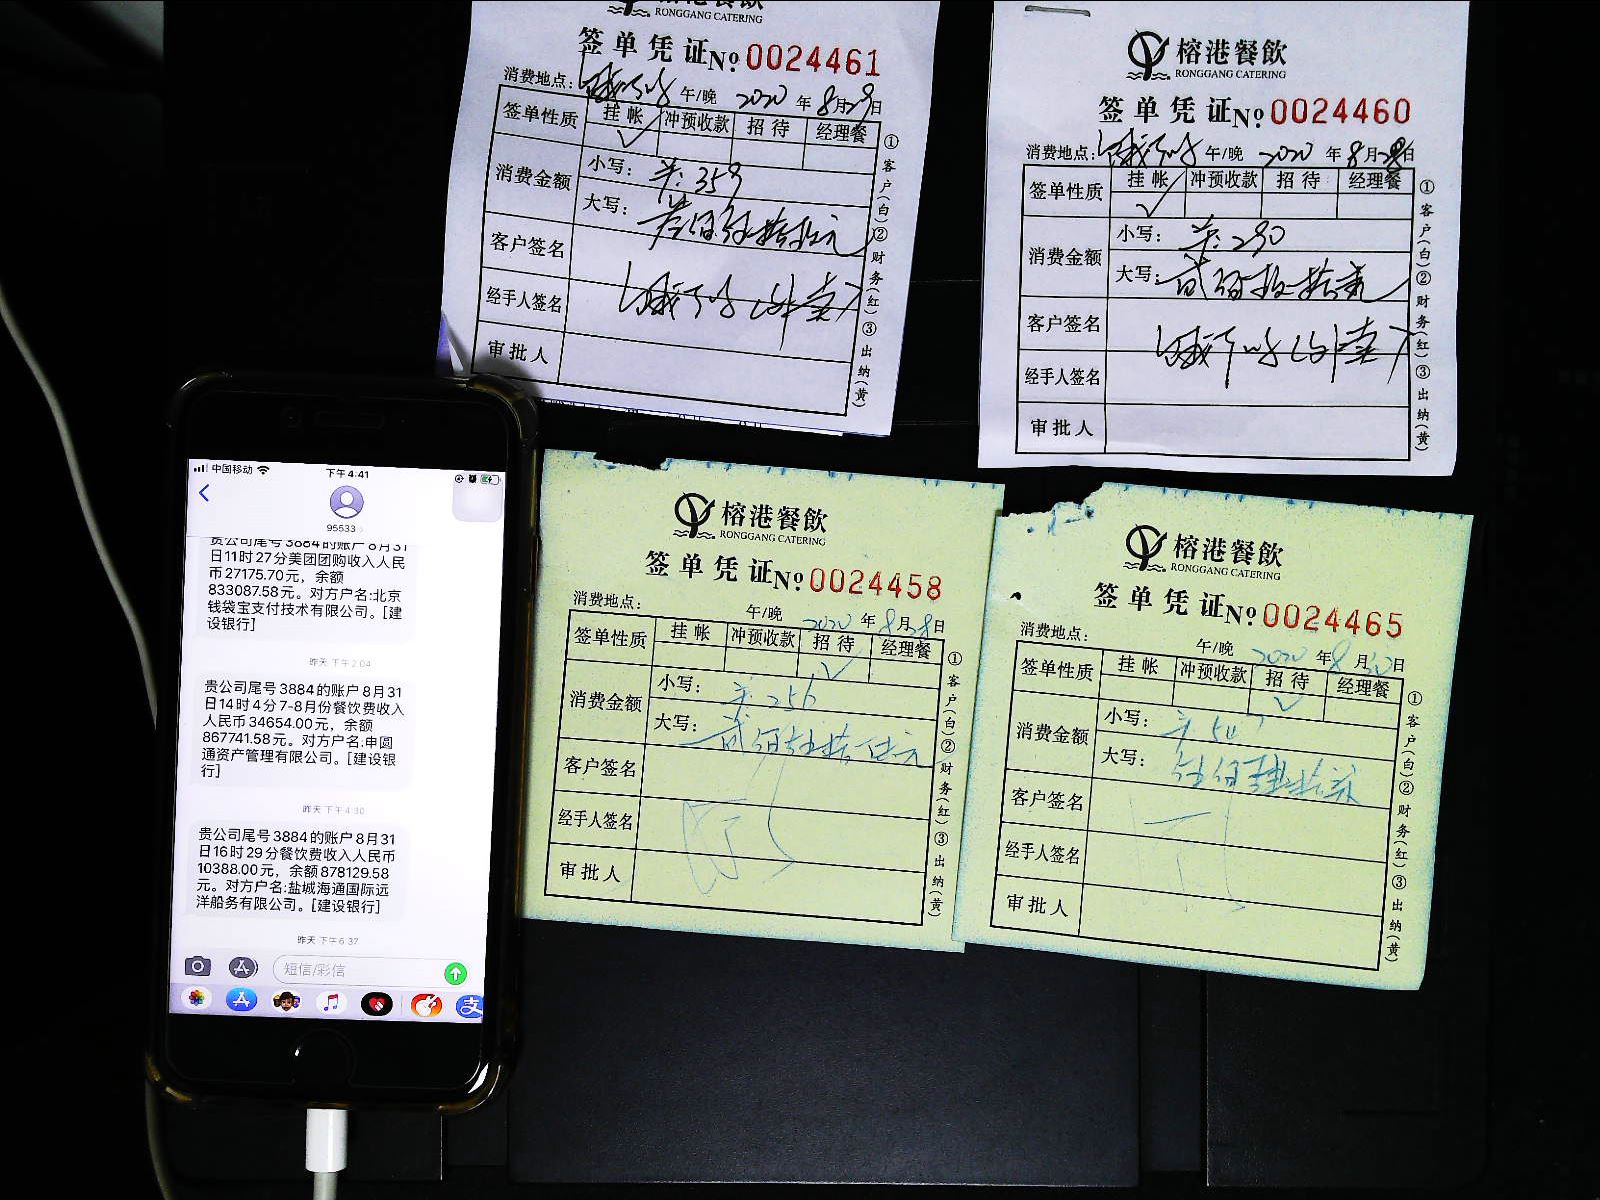 RONGGANG CATERING
签单凭证№0024461
消费地点：饿了吗 午/晚 2020年8月29日
签单性质 挂帐 冲预收款 招待 经理餐
消费金额 小写：¥:359
大写：叁佰伍拾玖元
客户签名
经手人签名 饿了吗(外卖)
审批人
①客户(白)②财务(红)③出纳(黄)
榕港餐飲
RONGGANG CATERING
签单凭证№0024460
消费地点：饿了吗 午/晚 2020年8月28日
签单性质 挂帐 冲预收款 招待 经理餐
消费金额 小写：¥:290
大写：贰佰玖拾元
客户签名 饿了吗(外卖)
经手人签名
审批人
①客户(白)②财务(红)③出纳(黄)
中国移动 下午4:41
95533
贵公司尾号3884的账户8月31
日11时27分美团团购收入人民
币27175.70元，余额
833087.58元。对方户名:北京
钱袋宝支付技术有限公司。[建
设银行]
昨天 下午2:04
贵公司尾号3884的账户8月31
日14时4分7-8月份餐饮费收入
人民币34654.00元，余额
867741.58元。对方户名:申圆
通资产管理有限公司。[建设银
行]
昨天 下午4:30
贵公司尾号3884的账户8月31
日16时29分餐饮费收入人民币
10388.00元，余额878129.58
元。对方户名:盐城海通国际远
洋船务有限公司。[建设银行]
昨天 下午6:37
短信/彩信
榕港餐飲
RONGGANG CATERING
签单凭证№0024458
消费地点： 午/晚 2020年8月28日
签单性质 挂帐 冲预收款 招待 经理餐
消费金额 小写：¥:256
大写：贰佰伍拾陆元
客户签名
经手人签名
审批人
①客户(白)②财务(红)③出纳(黄)
榕港餐飲
RONGGANG CATERING
签单凭证№0024465
消费地点： 午/晚 2020年8月30日
签单性质 挂帐 冲预收款 招待 经理餐
消费金额 小写：
大写：
客户签名
经手人签名
审批人
①客户(白)②财务(红)③出纳(黄)